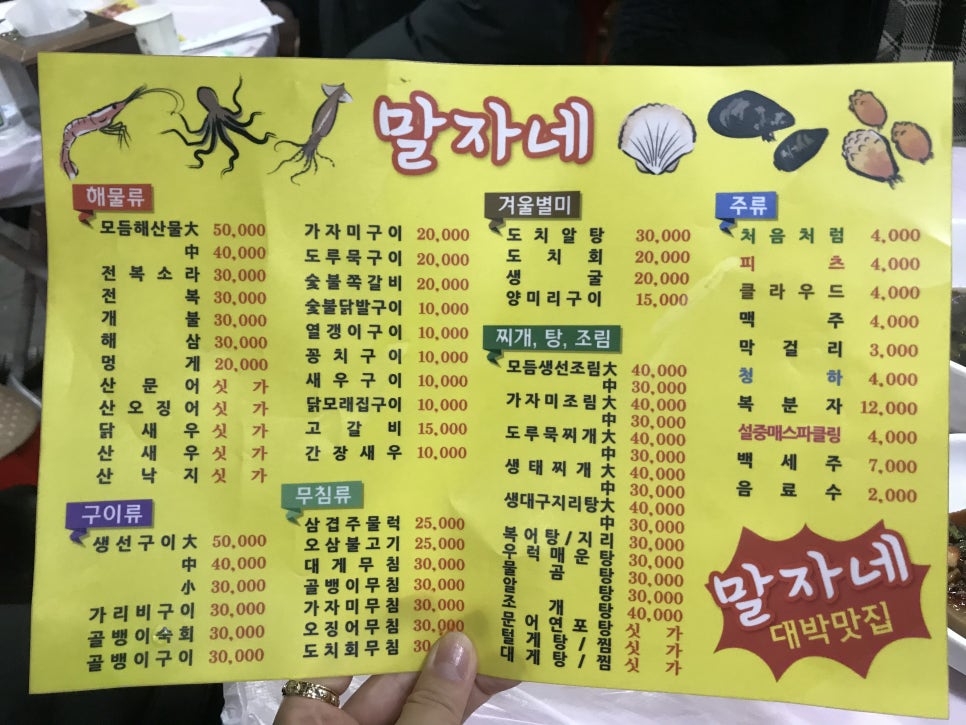 말자네
해물류
모듬해산물大 50,000
中 40,000
전복소라 30,000
전복 30,000
개불 30,000
해삼 30,000
멍게 20,000
산문어 싯가
산오징어 싯가
닭새우 싯가
산새우 싯가
산낙지 싯가
구이류
생선구이大 50,000
中 40,000
小 30,000
가리비구이 30,000
골뱅이숙회 30,000
골뱅이구이 30,000
가자미구이 20,000
도루묵구이 20,000
숯불쪽갈비 20,000
숯불닭발구이 10,000
열갱이구이 10,000
꽁치구이 10,000
새우구이 10,000
닭모래집구이 10,000
고갈비 15,000
간장새우 10,000
무침류
삼겹주물럭 25,000
오삼불고기 25,000
대게무침 30,000
골뱅이무침 30,000
가자미무침 30,000
오징어무침 30,000
도치회무침 30
겨울별미
도치알탕 30,000
도치회 20,000
생굴 20,000
양미리구이 15,000
찌개, 탕, 조림
모듬생선조림大 40,000
中 30,000
가자미조림大 40,000
中 30,000
도루묵찌개大 40,000
中 30,000
생태찌개大 40,000
中 30,000
생대구지리탕大 40,000
中 30,000
복어탕/지리 30,000
우럭매운탕 30,000
물곰탕 30,000
알탕 30,000
조개탕 40,000
문어연포탕 싯가
털게탕/찜 싯가
대게탕/찜 싯가
주류
처음처럼 4,000
피츠 4,000
클라우드 4,000
맥주 4,000
막걸리 3,000
청하 4,000
복분자 12,000
설중매스파클링 4,000
백세주 7,000
음료수 2,000
말자네
대박맛집